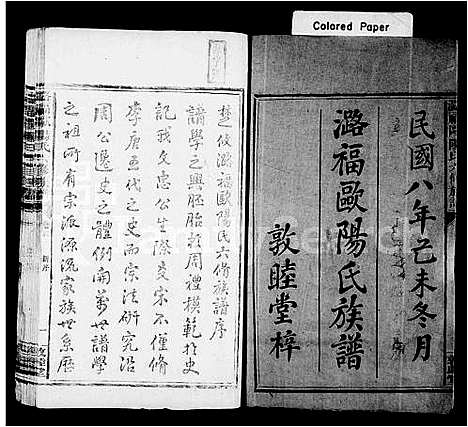 Colored Paper
民國八年己未冬月
潞福歐陽氏族譜
敦睦堂梓
楚攸潞福歐陽氏六修族譜序
譜學之興胚胎於周禮模範於史
記我文忠公生際炎宋不僅修
李唐五代之史而宗法研究沿
周公逸史之體例開萬世譜學
之祖所有宗派源流家族世系歷